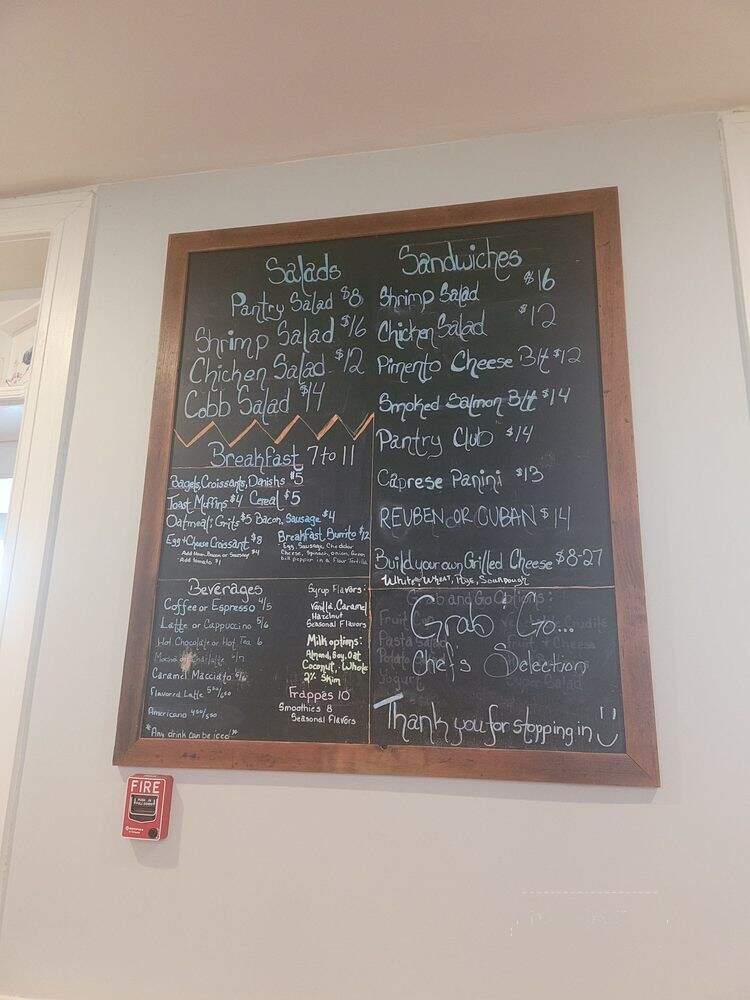 Salads
Pantry Salad $8
Shrimp Salad $16
Chicken Salad $12
Cobb Salad $14
Breakfast 7 to 11
Bagels, Croissants, Danishs $5
Toast Muffins $4 Cereal $5
Oatmeal, Grits $5 Bacon, Sausage $4
Egg + Cheese Croissant $8
Add Ham, Bacon or Sausage $4
Add tomato $1
Breakfast Burrito $12
Egg, Sausage, Cheddar
Cheese, Spinach, onion, Green
bell pepper in a Flour Tortilla
Beverages
Coffee or Espresso 4/5
Latte or Cappuccino 5/6
Hot Chocolate or Hot Tea 6
Mocha or Chai latte
Caramel Macciato
Flavored Latte
Americano 450/550
*Any drink can be iced!*
Syrup Flavors:
Vanilla, Caramel
Hazelnut
Seasonal Flavors
Milk options:
Almond, Soy, Oat
Coconut, Whole
2% Skim
Frappes 10
Smoothies 8
Seasonal Flavors
Sandwiches
Shrimp Salad $16
Chicken Salad $12
Pimento Cheese Blt $12
Smoked Salmon Blt $14
Pantry Club $14
Caprese Panini $13
REUBEN OR CUBAN $14
Build your own Grilled Cheese $8-27
White or Wheat, Rye, Sourdough
Grab and Go Options:
Grab 'Go...
Chef's Selection
Fruit
Pasta Salad
Potato
Yogurt
Thank you for stopping in
FIRE